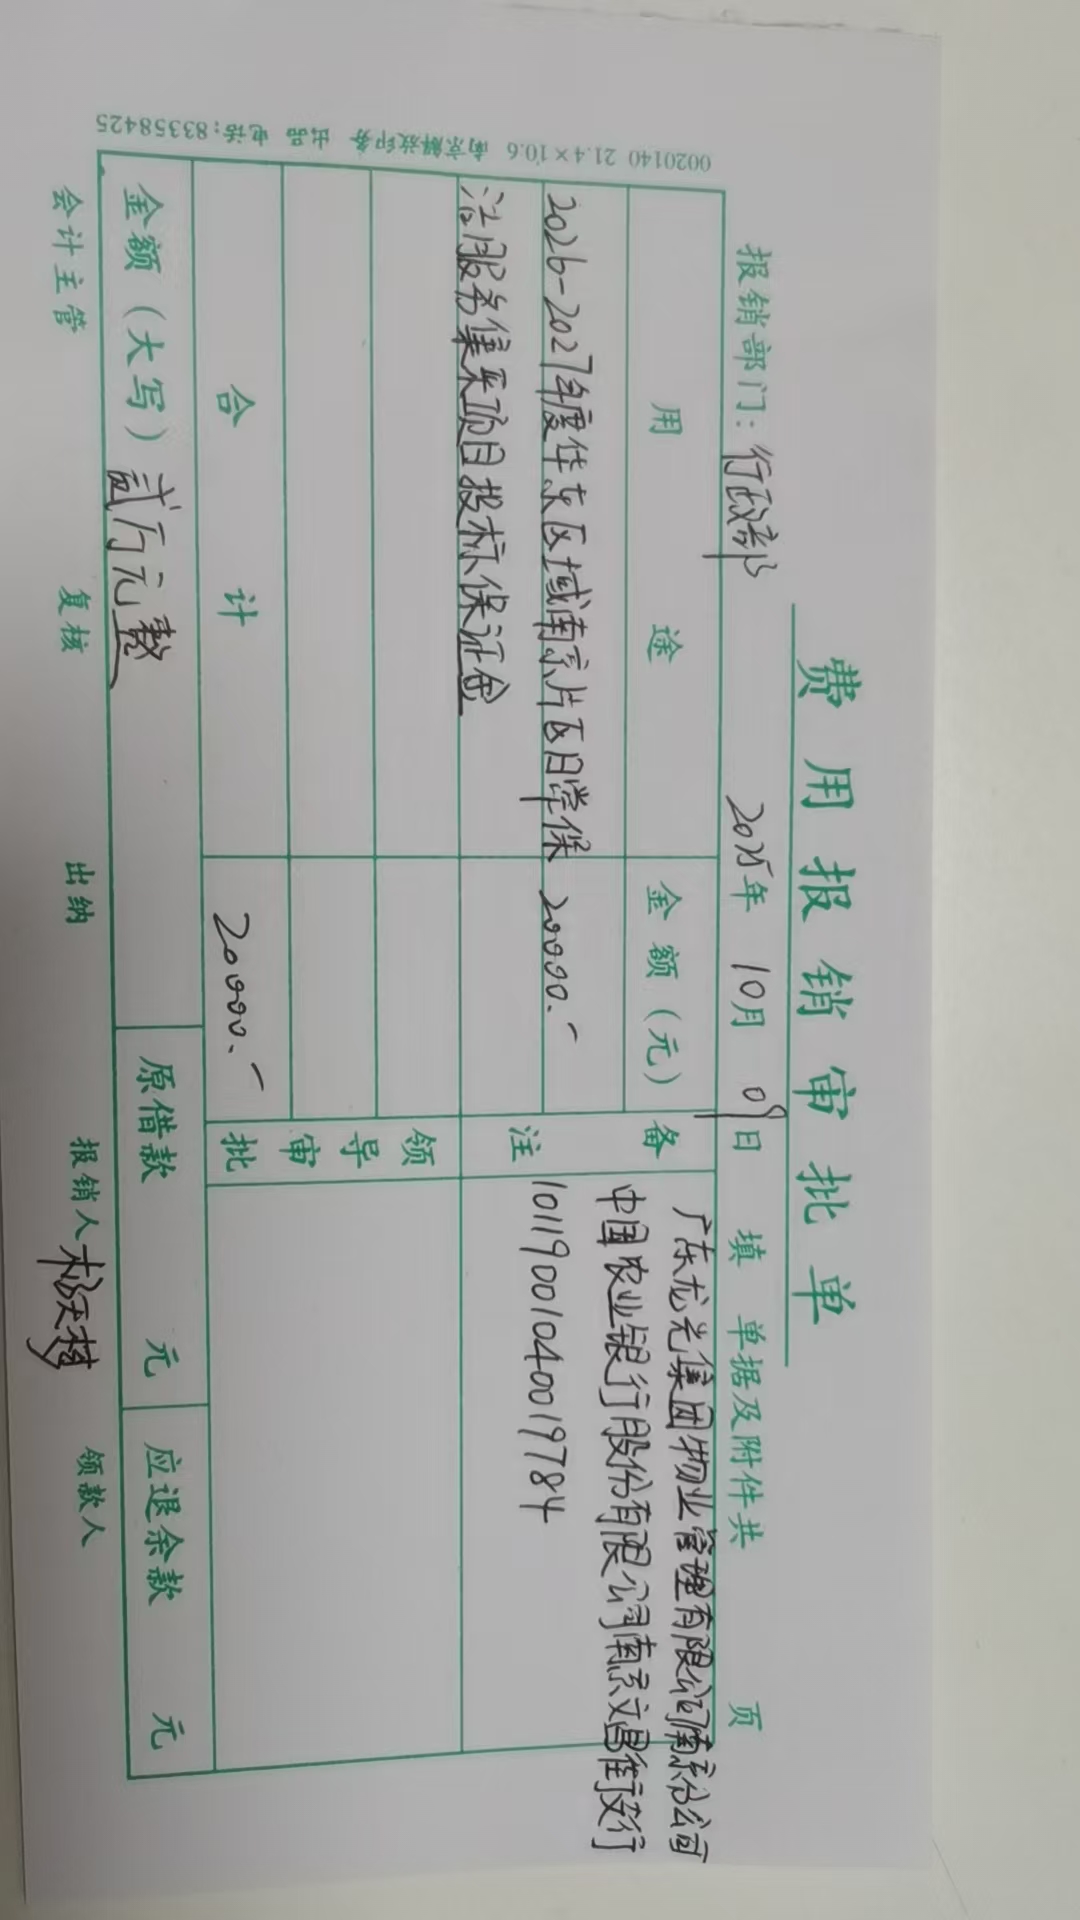 费用报销审批单
报销部门：行政部 2025年 10月 09日 填 单据及附件共 页
用途 金额（元） 备注
2026-2027年度华东区域南京片区日常保 20000.-
洁服务集采项目投标保证金
广东龙光集团物业管理有限公司南京分公司
中国农业银行股份有限公司南京文昌街支行
10119001040019784
领导审批
合计 20000.-
金额（大写）贰万元整 原借款 元 应退余款 元
会计主管 复核 出纳 报销人 领款人
0020140 21.4×10.6 南京解放印务 出品 电话：83358425